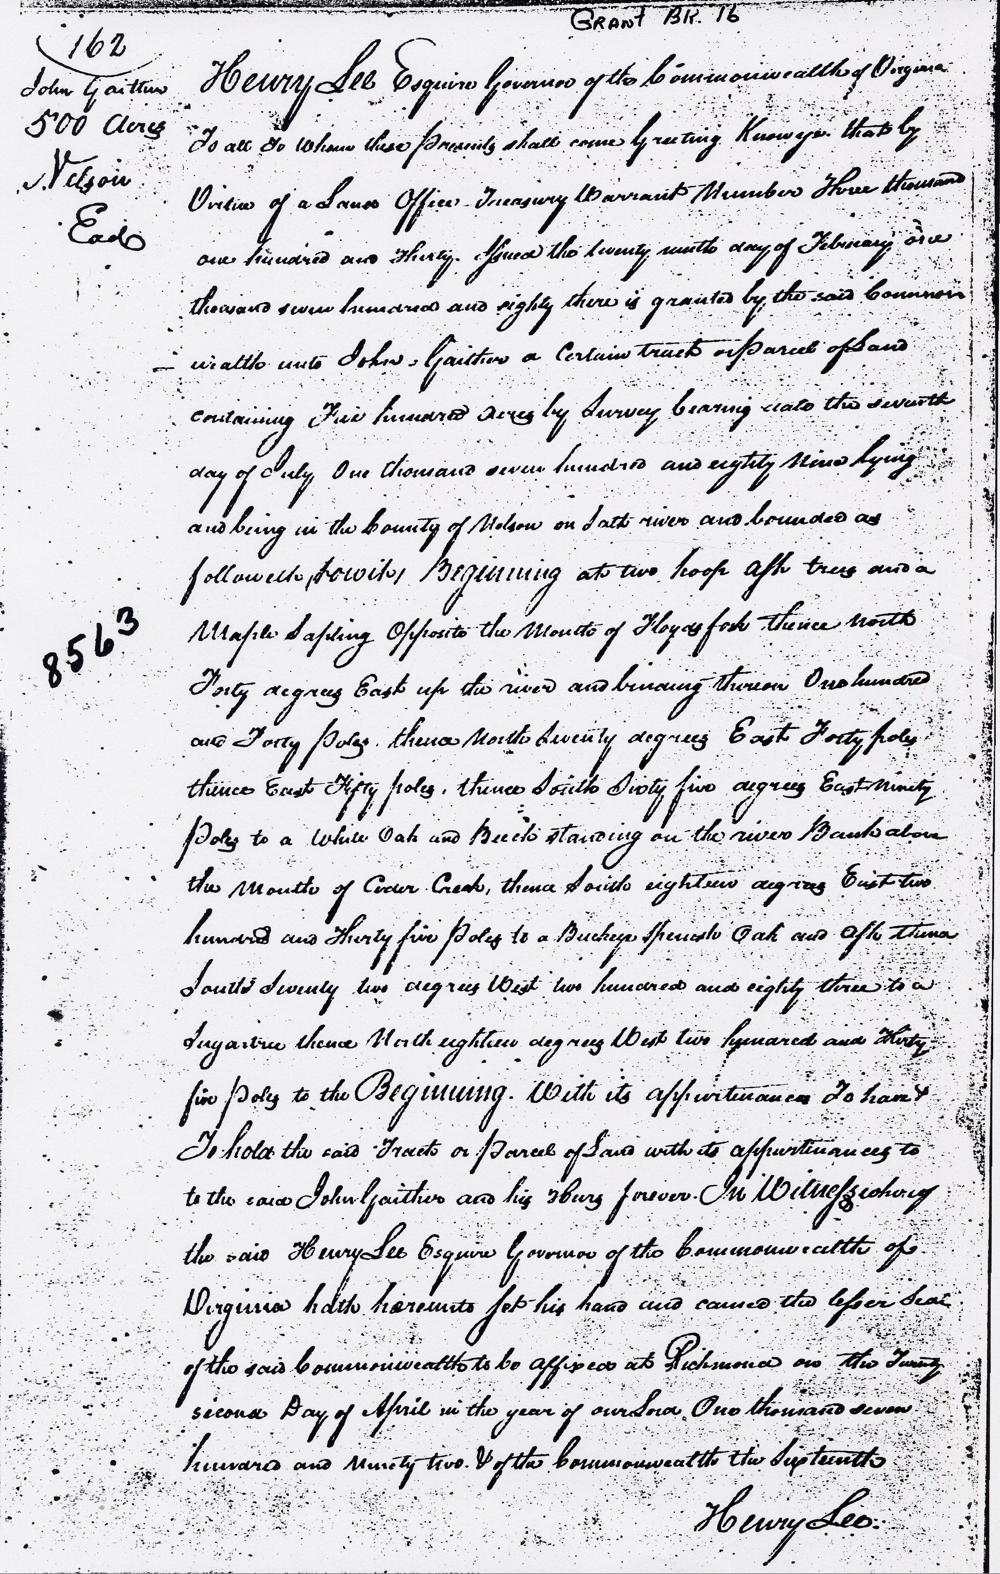 GRANT BK. 16
162
John Gaither
500 Acres
Nelson
Exd
Henry Lee Esquire Governor of the Commonwealth of Virginia
To all to whom these Presents shall come Greeting Know ye that by
Virtue of a Land Office Treasury Warrant Number Three thousand
one hundred and Thirty Issued the twenty ninth day of February one
thousand seven hundred and eighty there is granted by the said Common
wealth unto John Gaither a Certain tract or Parcel of Land
containing Five hundred Acres by Survey bearing date the seventh
day of July One thousand seven hundred and eighty Nine lying
and being in the County of Nelson on Salt river and bounded as
followeth, towit, Beginning at two hoop Ash trees and a
Maple Sapling Opposite the Mouth of Floyds fork thence North
Forty degrees East up the river and binding thereon One hundred
and Forty Poles. thence North Seventy degrees East Forty poles
thence East Fifty poles, thence South Sixty five degrees East Ninety
Poles to a White Oak and Beech standing on the rivers Bank above
the Mouth of Ceder Creek, thence South eighteen degrees East two
hundred and Thirty five Poles to a Buckeye Spenish Oak and Ash thence
South Seventy two degrees West two hundred and eighty three to a
Sugartree thence North eighteen degrees West two hundred and Thirty
five Poles to the Beginning. With its appurtenances To have &
To hold the said Tract or Parcel of Land with its appurtenances to
to the said John Gaither and his Heirs forever. In Witness whereof
the said Henry Lee Esquire Governor of the Commonwealth of
Virginia hath hereunto set his hand and caused the lesser Seal
of the said Commonwealth to be affixed at Richmond on the Twenty
second Day of April in the year of our Lord One thousand seven
hundred and Ninety two. & of the Commonwealth the Sixteenth
Henry Lee.
8563